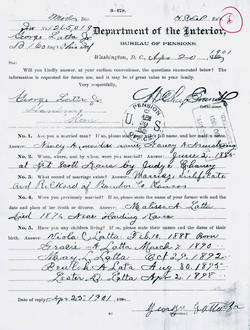 3-478.
Department of the Interior,
BUREAU OF PENSIONS,
Washington, D. C., Apr 20 1901
George Latta Jr.
Will you kindly answer, at your earliest convenience, the questions enumerated below? The
information is requested for future use, and it may be of great value to your family.
Very respectfully,
George Latta Jr.
Commissioner.
PENSION
U.S.
No. 1. Are you a married man? If so, please state your wife's full name, and her maiden name.
Answer: Nancy A. Latta maiden name, Nancy A Armstrong
No. 2. When, where, and by whom were you married? Answer: June 15 1885
at Fort Scott Kansas by Judge
No. 3. What record of marriage exists? Answer: Marriage Certificate
and Record of Bourbon Co Kansas
No. 4. Were you previously married? If so, please state the name of your former wife and the
date and place of her death or divorce. Answer: Malissa A. Latta
Died 1876 Near Harding Kans
No. 5. Have you any children living? If so, please state their names and the dates of their
birth. Answer: Viola C Latta Feb 11. 1888 Born
Gracie A Latta March 7 1890
May L Latta Oct 29. 1892
Beulah A Latta Aug 30. 1895
Lester D Latta Apr 2. 1898
Date of reply, Apr 25 1901
George Latta Jr